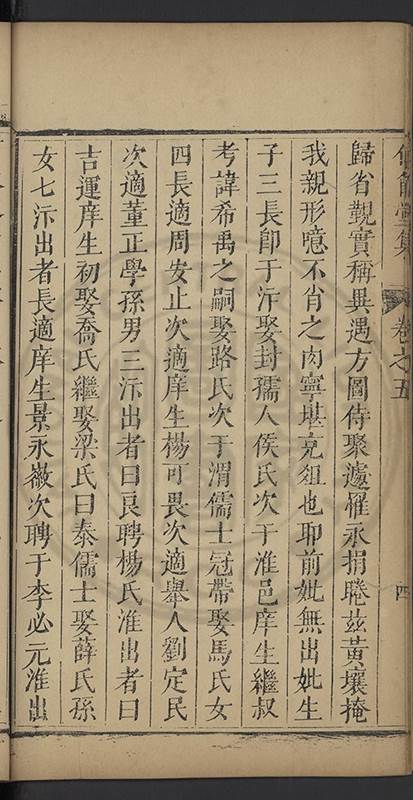 集 卷之五 四
歸省覲實稱異遇方圖侍聚遽罹永捐睠茲黃壤掩
我親形噫不肖之肉寧堪充俎也耶前妣無出妣生
子三長即于汴娶封孺人侯氏次于淮邑庠生繼叔
考諱希禹之嗣娶路氏次于渭儒士冠帶娶馬氏女
四長適周安止次適庠生楊可畏次適舉人劉定民
次適董正學孫男三汴出者曰良聘楊氏淮出者曰
吉運庠生初娶喬氏繼娶梁氏曰泰儒士娶薛氏孫
女七汴出者長適庠生景永嶶次聘于李必元淮出